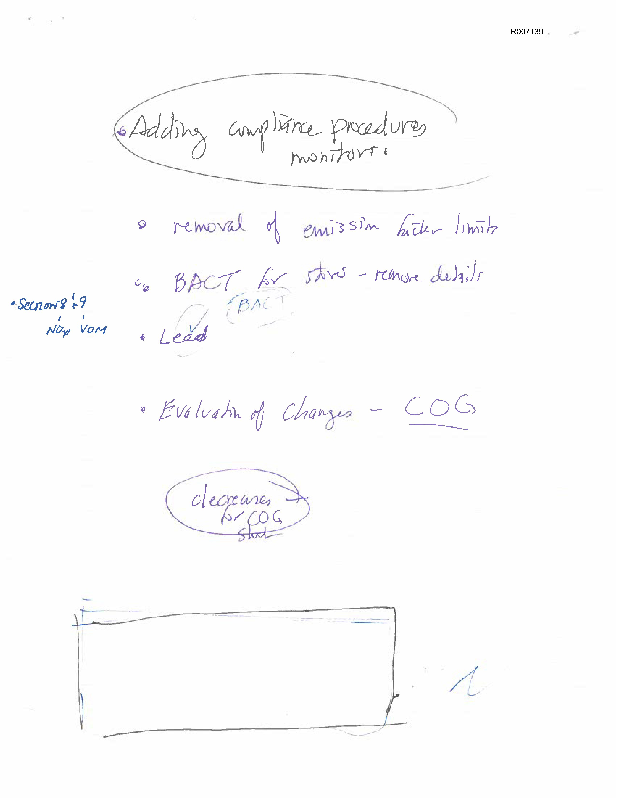 Adding compliance procedures
monitors
removal of emission factor limits
BACT for stoves - remove details
BACT
• Section 8 & 9
NOx VOM
• Lead
• Evaluation of Changes - COG
decreases →
for COG